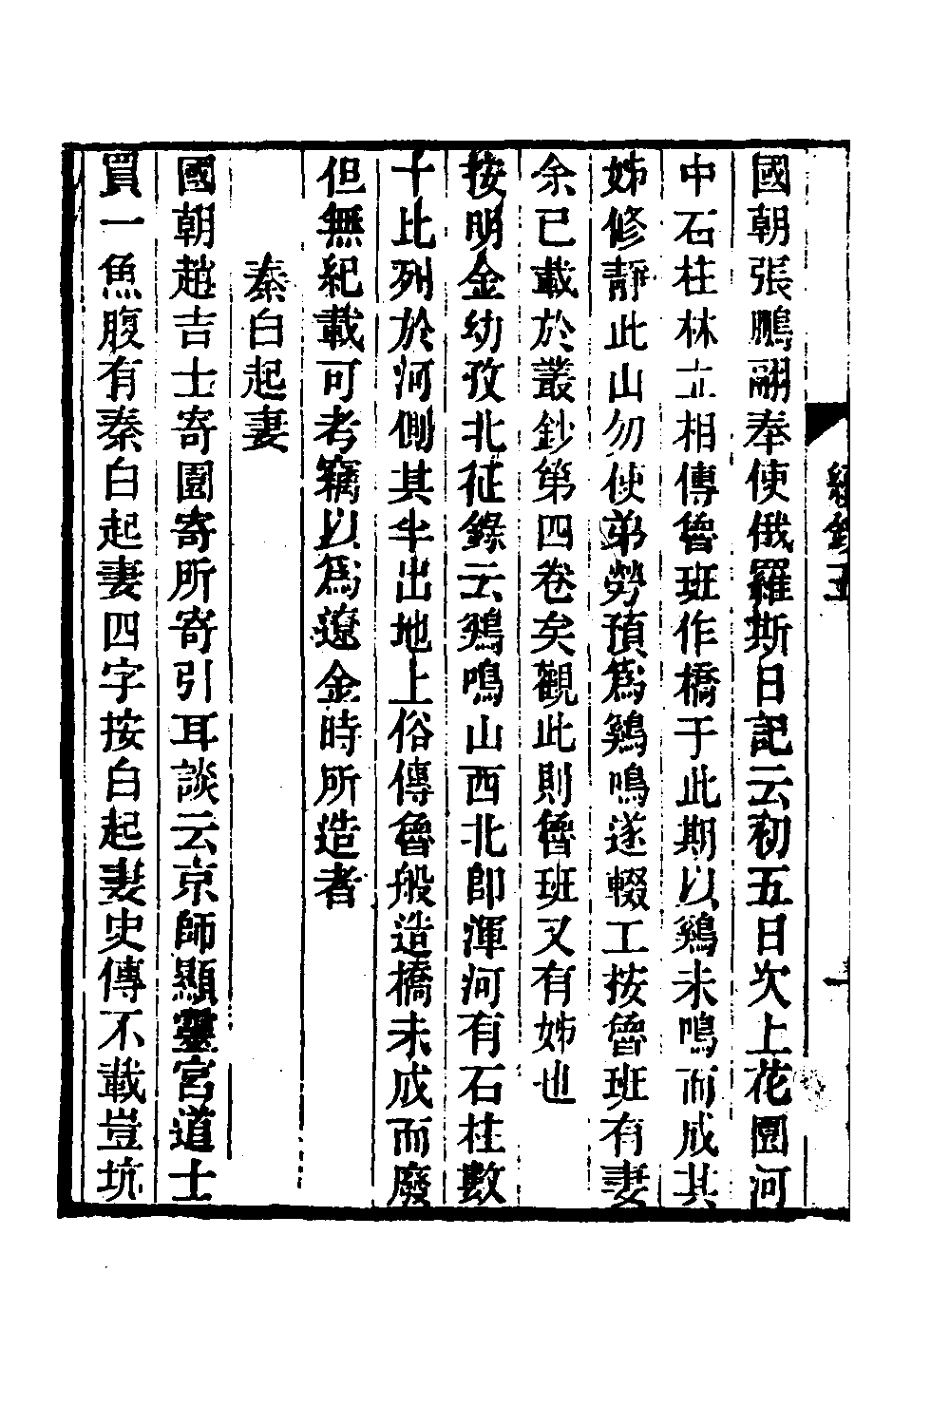 國朝張鵬翮奉使俄羅斯日記云初五日次上花園河
中石柱林立相傳魯班作橋于此期以鷄未鳴而成其
姊修靜此山勿使弟勞預爲鷄鳴遂輟工按魯班有妻
余已載於叢鈔第四卷矣觀此則魯班又有姊也
按明金幼孜北征錄云鷄鳴山西北卽渾河有石柱數
十比列於河側其半出地上俗傳魯般造橋未成而廢
但無紀載可考竊以爲遼金時所造者
秦白起妻
國朝趙吉士寄園寄所寄引耳談云京師顯靈宮道士
買一魚腹有秦白起妻四字按白起妻史傳不載豈坑